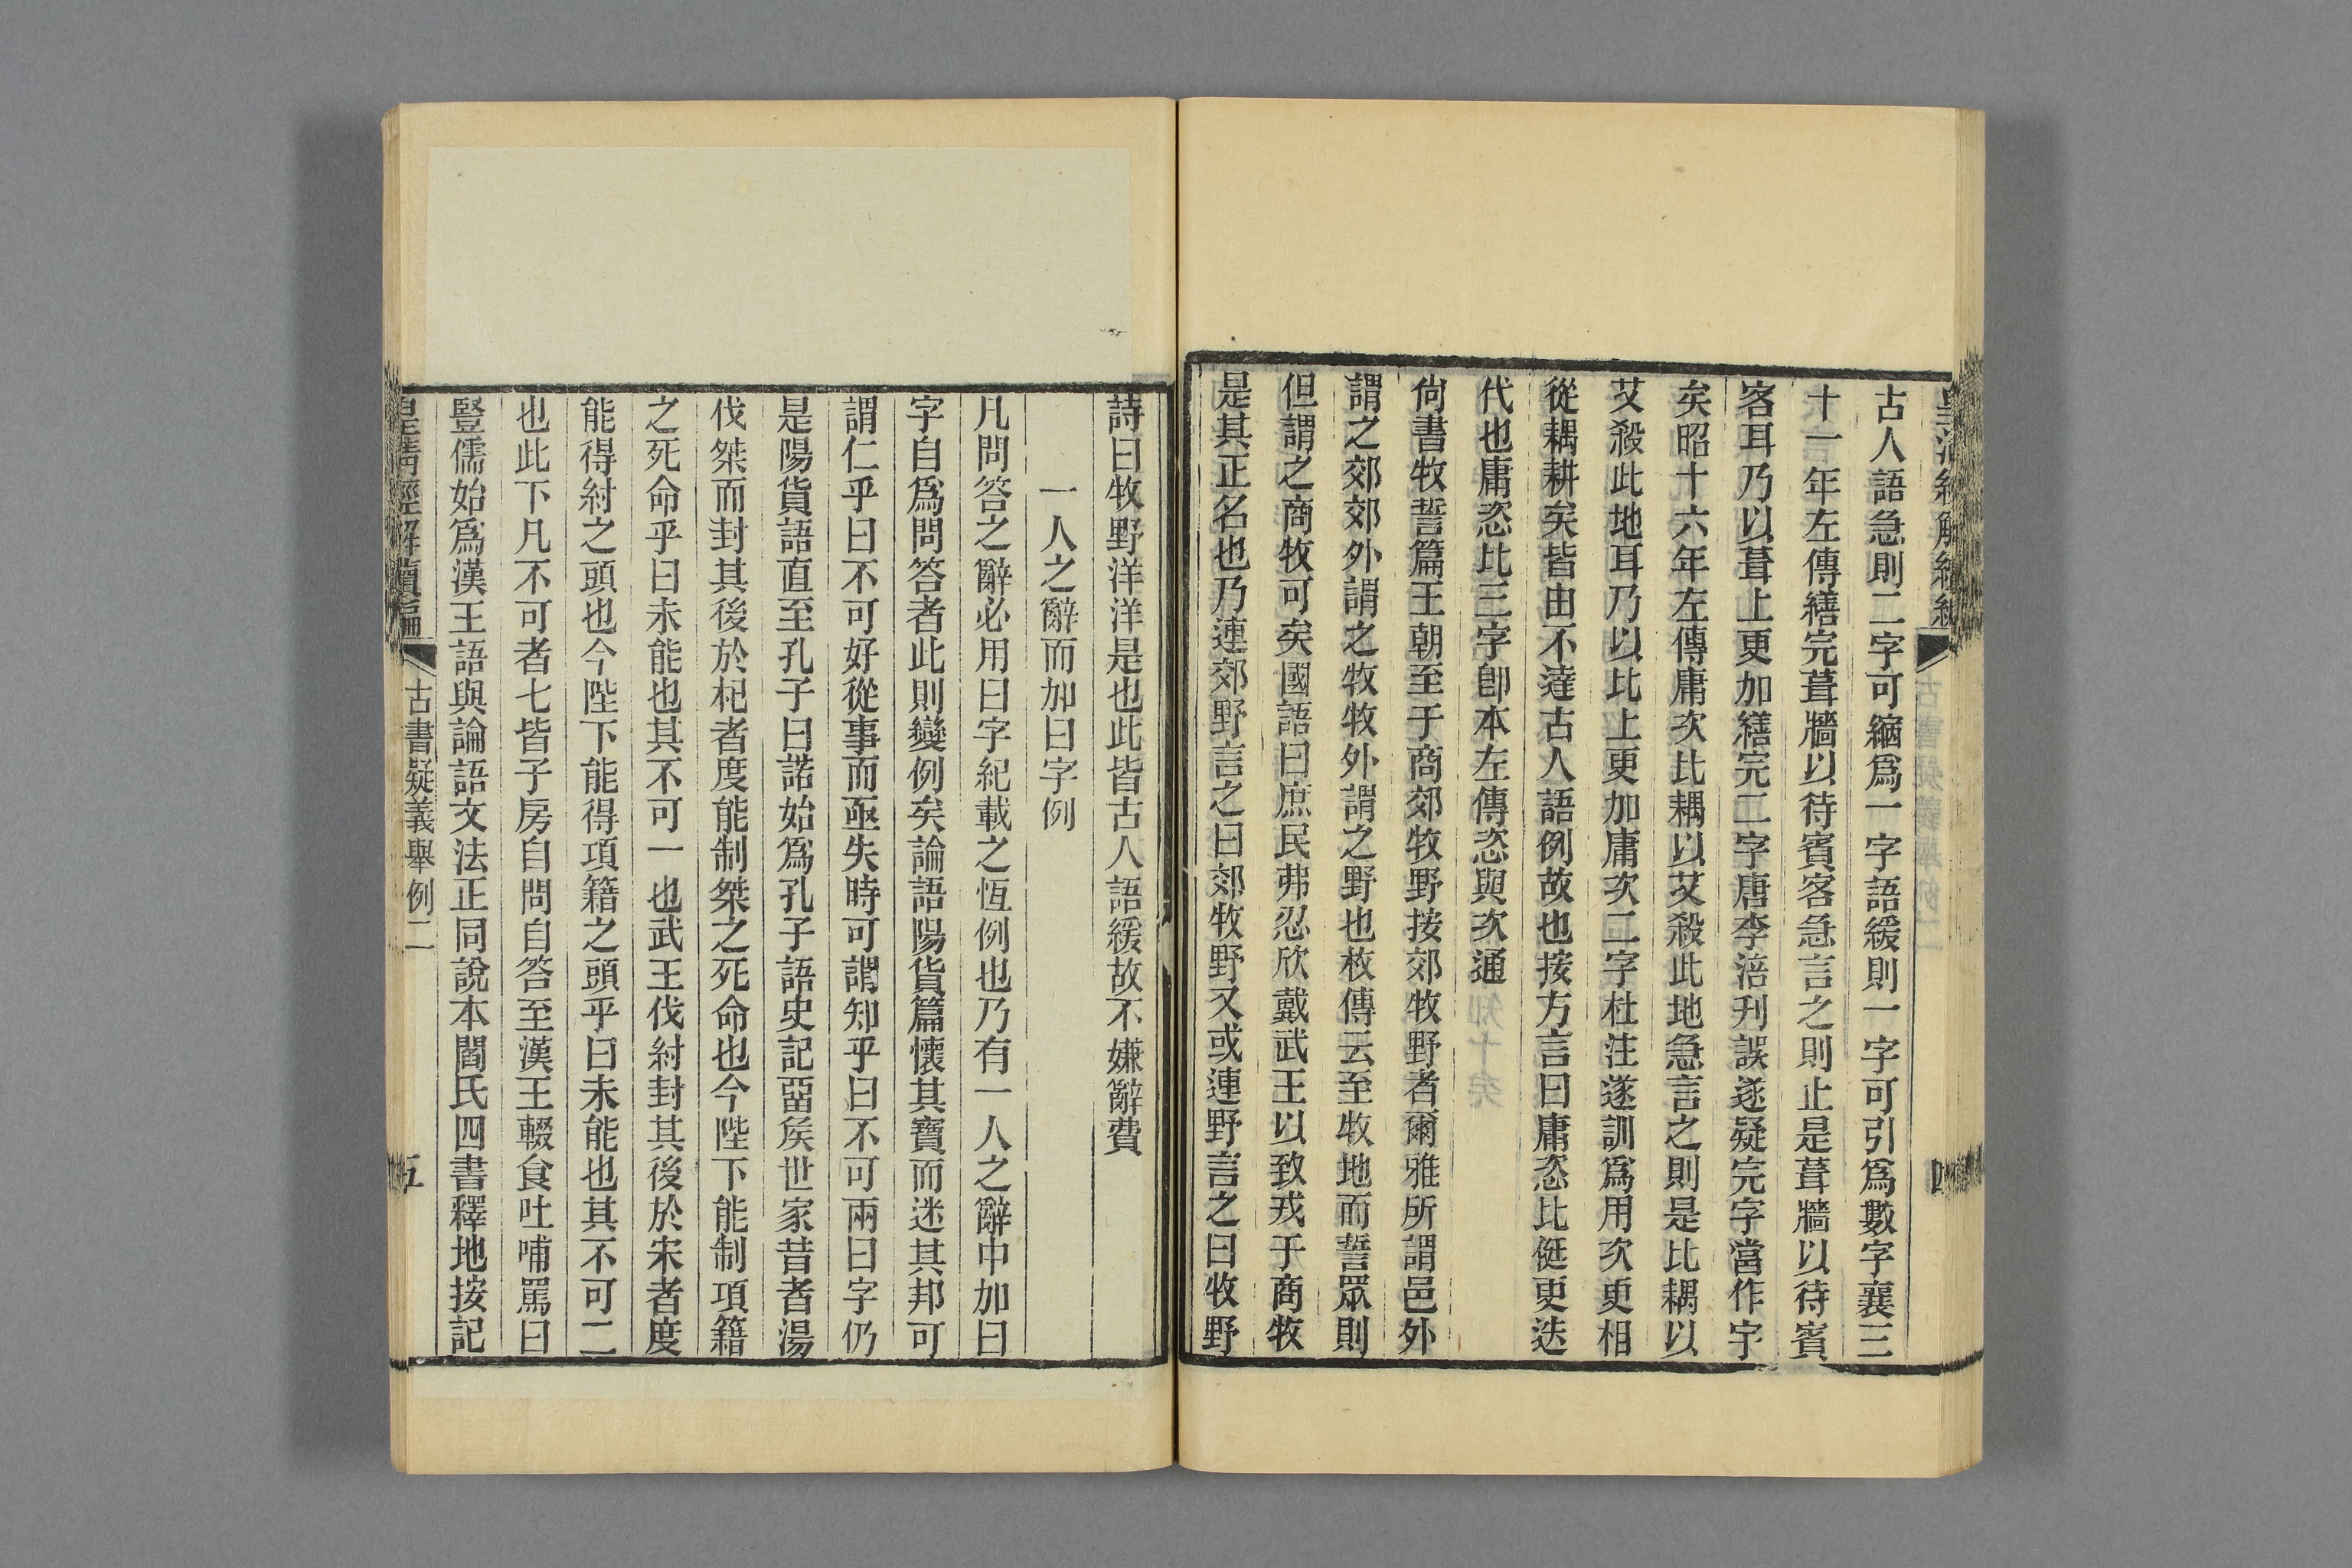 古人語急則二字可縮爲一字語緩則一字可引爲數字襄三
十一年左傳繕完葺牆以待賓客急言之則止是葺牆以待賓
客耳乃以葺上更加繕完二字唐李涪刋誤遂疑完字當作宇
矣昭十六年左傳庸次比耦以艾殺此地急言之則是比耦以
艾殺此地耳乃以比上更加庸次二字杜注遂訓爲用次更相
從耦耕矣皆由不達古人語例故也按方言曰庸恣比侹更迭
代也庸恣比三字卽本左傳恣與次通
尙書牧誓篇王朝至于商郊牧野按郊牧野者爾雅所謂邑外
謂之郊郊外謂之牧牧外謂之野也枚傳云至牧地而誓眾則
但謂之商牧可矣國語曰庶民弗忍欣戴武王以致戎于商牧
是其正名也乃連郊野言之曰郊牧野又或連野言之曰牧野
四
詩曰牧野洋洋是也此皆古人語緩故不嫌辭費
一人之辭而加曰字例
凡問答之辭必用曰字紀載之恆例也乃有一人之辭中加曰
字自爲問答者此則變例矣論語陽貨篇懷其寶而迷其邦可
謂仁乎曰不可好從事而亟失時可謂知乎曰不可兩曰字仍
是陽貨語直至孔子曰諾始爲孔子語史記畱矦世家昔者湯
伐桀而封其後於杞者度能制桀之死命也今陛下能制項籍
之死命乎曰未能也其不可一也武王伐紂封其後於宋者度
能得紂之頭也今陛下能得項籍之頭乎曰未能也其不可二
也此下凡不可者七皆子房自問自答至漢王輟食吐哺罵曰
豎儒始爲漢王語與論語文法正同說本閻氏四書釋地按記
皇淸經解續編
古書疑義舉例二
五